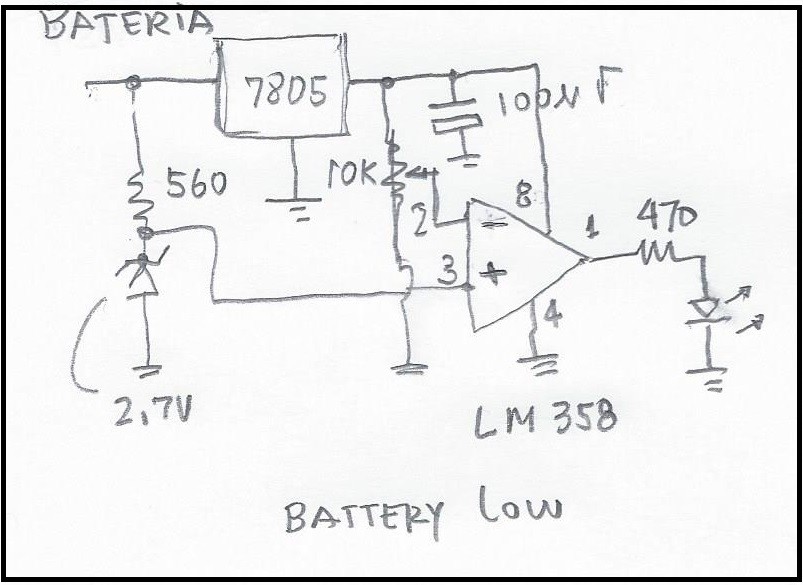 BATERIA
7805
100N F
560
10K
8
2
1
470
3
4
2,7V
LM 358
BATTERY LOW